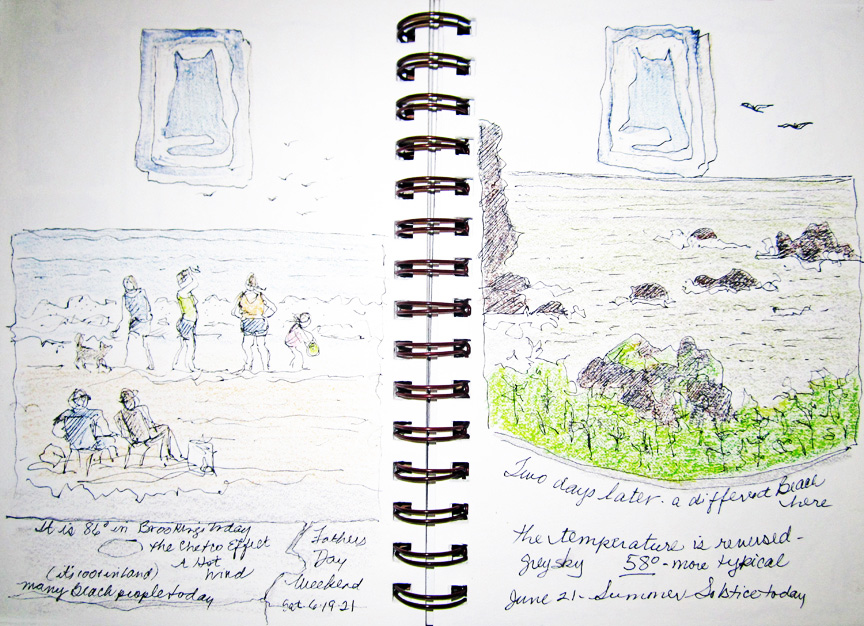 It is 86° in Brookings today
the Chetco Effect
A Hot Wind
(it's 100+ inland)
many Beach people today
Fathers
Day
Weekend
Sat 6-19-21
Two days later - a different Beach
here
the temperature is reversed -
grey sky 58° - more typical
June 21 - Summer Solstice today